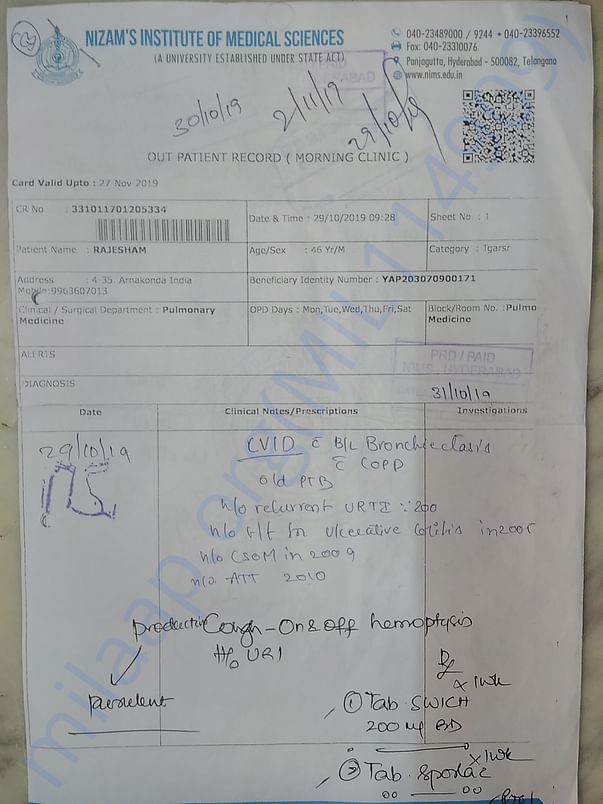 NIZAM'S INSTITUTE OF MEDICAL SCIENCES
(A UNIVERSITY ESTABLISHED UNDER STATE ACT)
040-23489000 / 9244 • 040-23396552
Fax: 040-23310076
Panjagutta, Hyderabad - 500082, Telangana
www.nims.edu.in
30/10/19
2/11/19
29/10/19
OUT PATIENT RECORD ( MORNING CLINIC )
Card Valid Upto : 27 Nov 2019
CR No : 331011701205334
Date & Time : 29/10/2019 09:28
Sheet No. : 1
Patient Name : RAJESHAM
Age/Sex : 46 Yr/M
Category : Tgarsr
Address : 4-35. Arnakonda India
Mobile:9963607013
Beneficiary Identity Number : YAP203070900171
Clinical / Surgical Department : Pulmonary Medicine
OPD Days : Mon,Tue,Wed,Thu,Fri,Sat
Block/Room No. : Pulmo Medicine
ALERTS
PRD / PAID
NIMS, HYDERABAD
DIAGNOSIS
31/10/19
Date
Clinical Notes/Prescriptions
Investigations
29/10/19
CVID c̄ B/L Bronchiectasis
c̄ COPD
old PTB
h/o recurrent URTI
h/o for ulcerative colitis in
h/o CSOM in 2009
h/o ATT 2010
productive Cough - On & off hemoptysis
H/o URI
purulent
Rx
x 1wk
① Tab. SWICH
200 mg BD
x 1wk
② Tab. Sporlac
milaap.org(MIL114909)